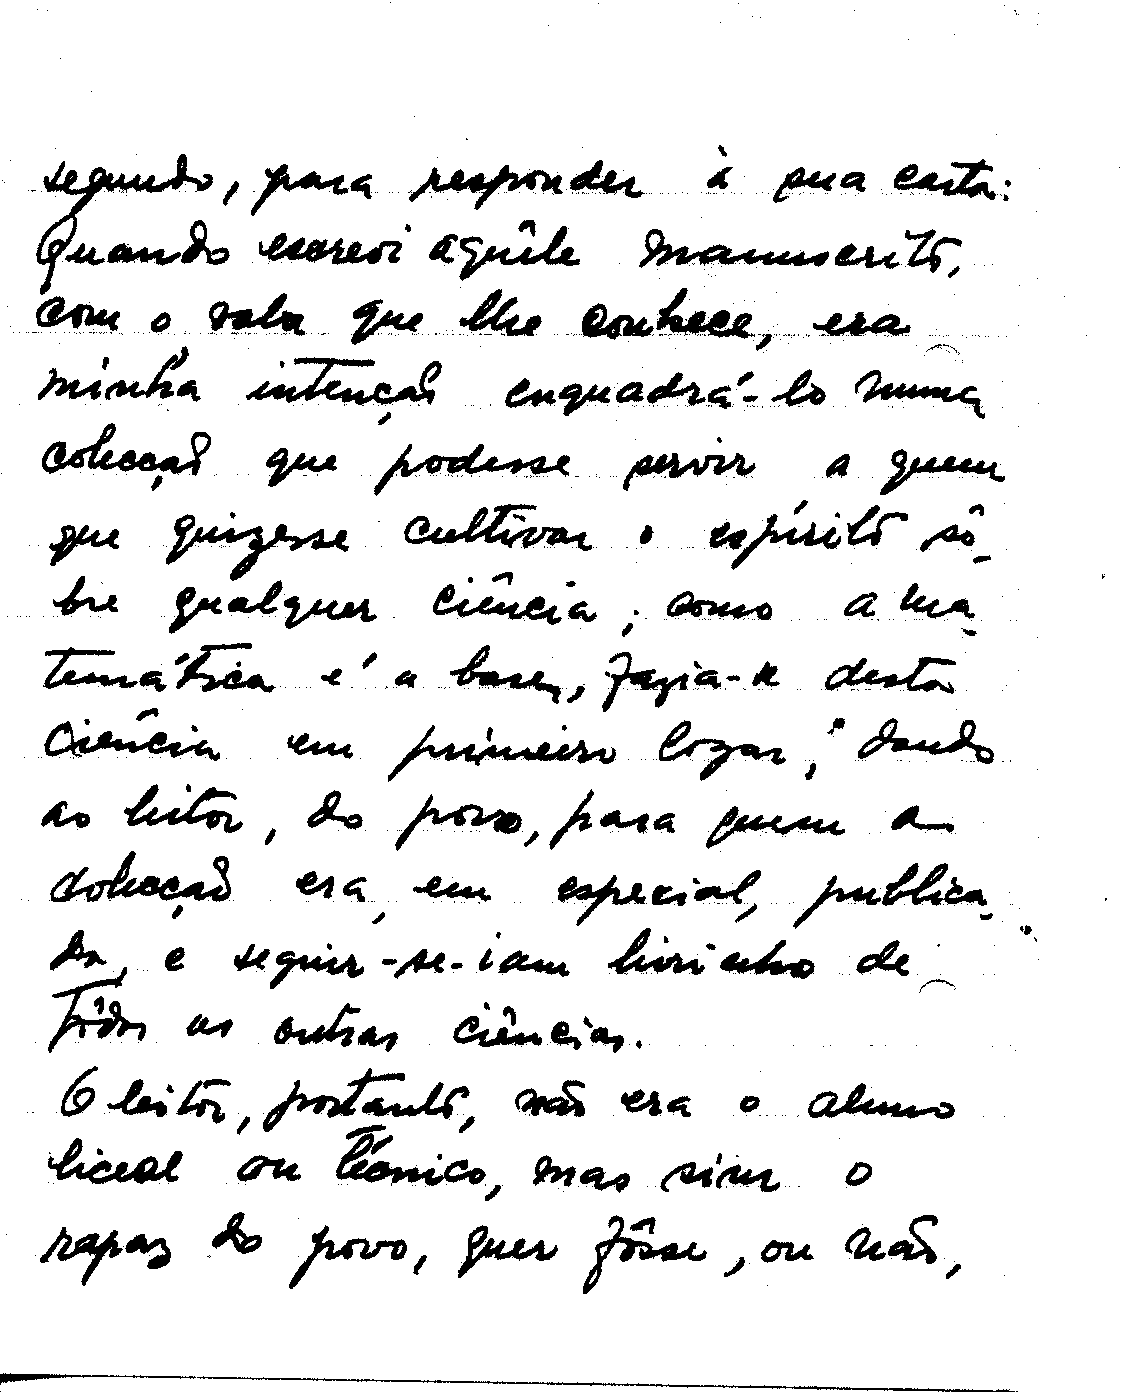 segundo, para responder à sua carta:
Quando escrevi aquêle manuscrito,
com o valor que lhe conhece, era
minha intenção enquadrá-lo numa
colecção que podesse servir a quem
que quizesse cultivar o espírito sô-
bre qualquer ciência; como a ma-
temática é a base, fazia-se desta
ciência em primeiro logar, dando
ao leitor, do povo, para quem a
colecção era, em especial, publica-
da, e seguir-se-iam livrinho de
tôdas as outras ciências.
O leitor, portanto, não era o aluno
liceal ou técnico, mas sim o
rapaz do povo, quer fôsse, ou não,